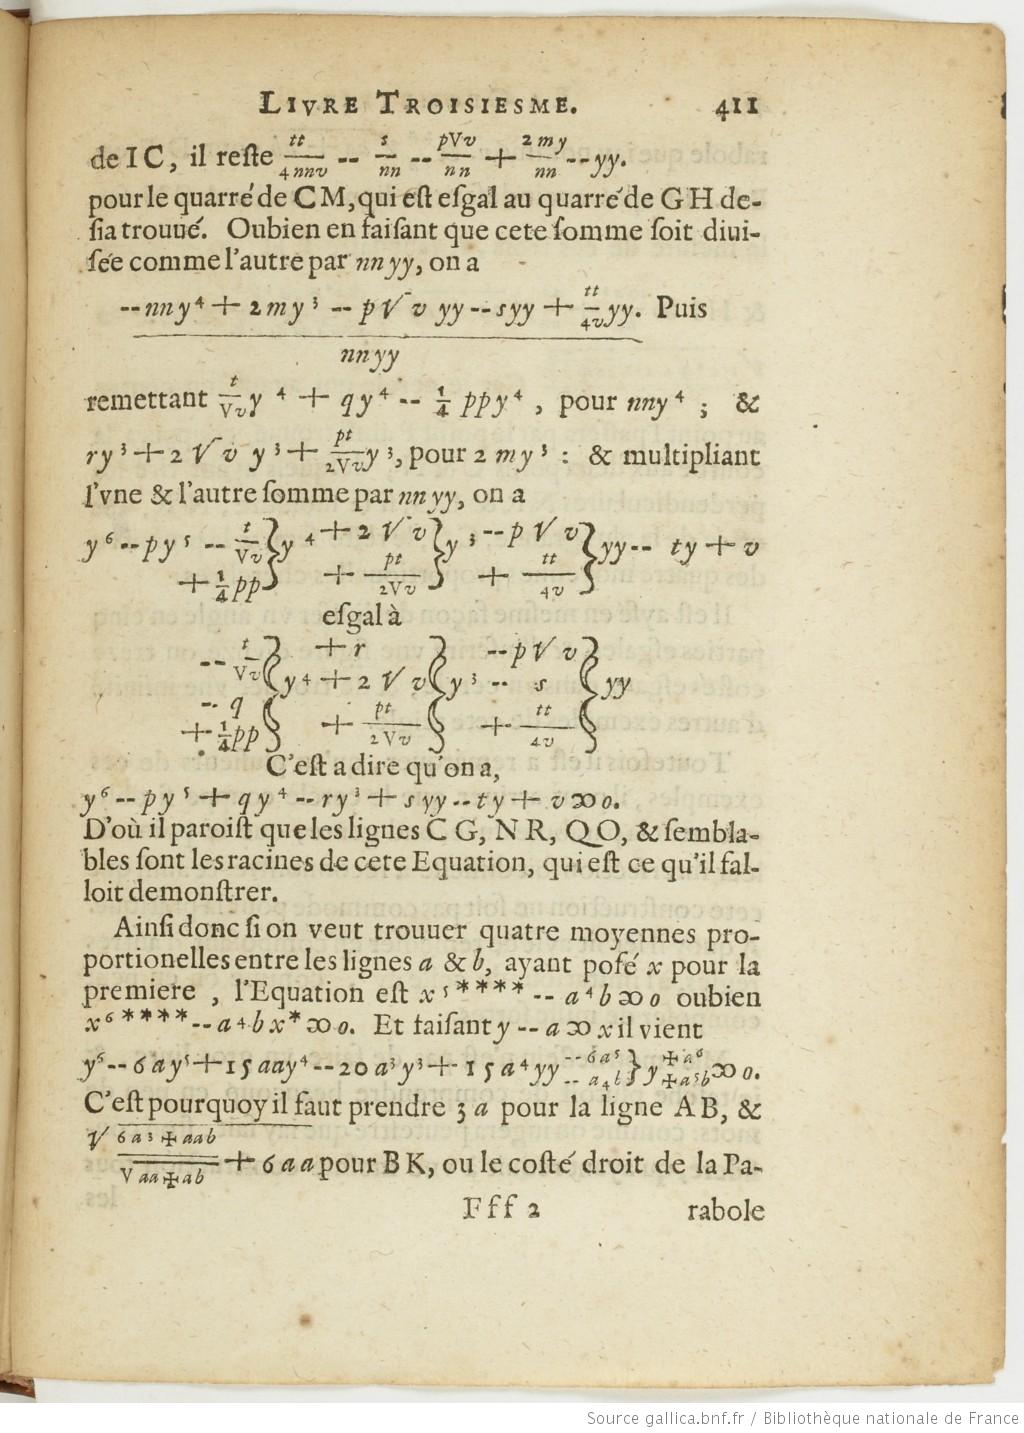 LIVRE TROISIESME. 411
de IC, il reste tt/4nnv -- s/nn -- p√v/nn + 2my/nn -- yy.
pour le quarré de CM, qui est esgal au quarré de GH de-
sia trouué. Oubien en faisant que cete somme soit diui-
sée comme l'autre par nnyy, on a
--nny⁴ + 2my³ -- p√v yy -- syy + tt/4v yy. Puis
nnyy
remettant t/√v y⁴ + qy⁴ -- ¼ppy⁴, pour nny⁴; &
ry³ + 2√v y³ + pt/2√v y³, pour 2my³: & multipliant
l'vne & l'autre somme par nnyy, on a
y⁶--py⁵ -- t/√v } y⁴ + 2√v } y³ --p√v } yy -- ty + v
+¼pp + pt/2√v + tt/4v
esgal à
-- t/√v } +r } --p√v }
y⁴ + 2√v y³ -- s yy
-- q
+¼pp + pt/2√v + tt/4v
C'est a dire qu'on a,
y⁶--py⁵ + qy⁴ -- ry³ + syy -- ty + v ꝏ 0.
D'où il paroist que les lignes CG, NR, QO, & sembla-
bles sont les racines de cete Equation, qui est ce qu'il fal-
loit demonstrer.
Ainsi donc si on veut trouuer quatre moyennes pro-
portionelles entre les lignes a & b, ayant posé x pour la
premiere, l'Equation est x⁵**** -- a⁴b ꝏ 0 oubien
x⁶****--a⁴bx* ꝏ 0. Et faisant y -- a ꝏ x il vient
y⁶--6ay⁵+15aay⁴--20a³y³+15a⁴yy --6a⁵ -- a⁴b } y ✠a⁶ ✠a⁵b ꝏ 0.
C'est pourquoy il faut prendre 3a pour la ligne AB, &
√ 6a³✠aab/√aa✠ab + 6aa pour BK, ou le costé droit de la Pa-
Fff 2 rabole
Source gallica.bnf.fr / Bibliothèque nationale de France